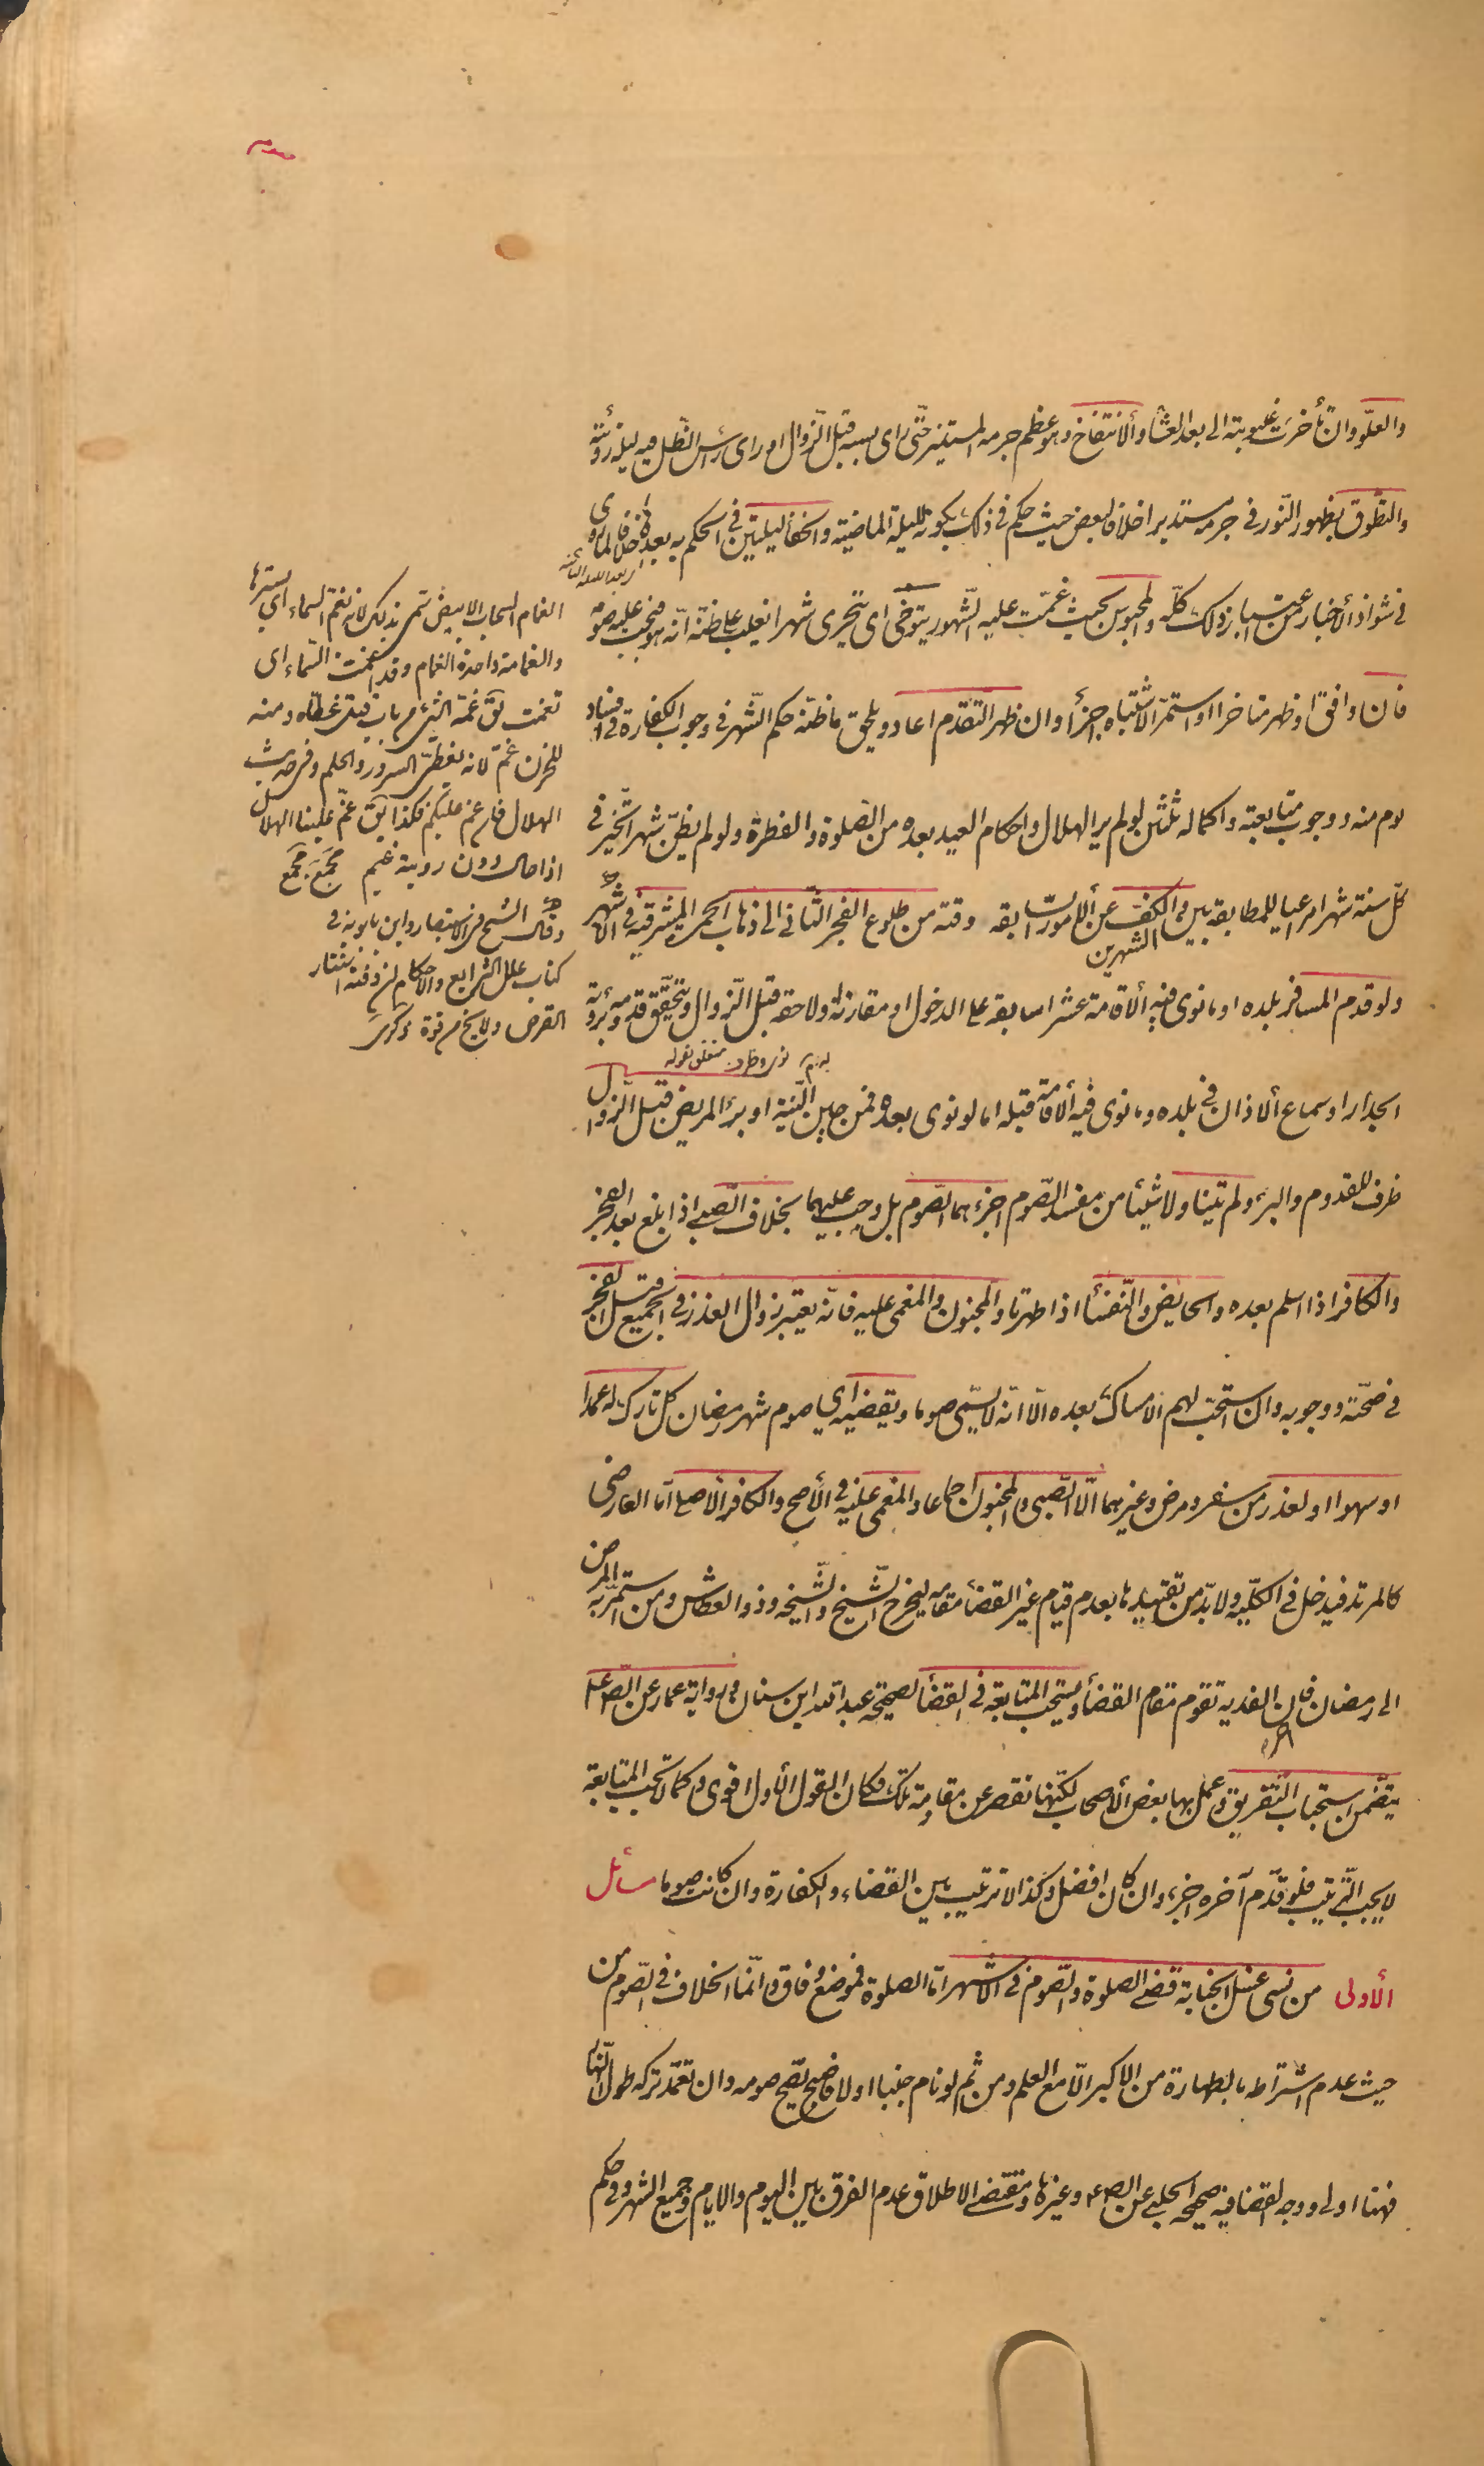 والعلوّ وان تأخرت غيبوبته الى بعد العشأ والانتفاخ وهو عظم جرمه المستنير حتّى راى بسببه قبل الزّوال او راى رأس الظّل فيه ليلة رؤيته
والتطوّق بظهور النّور فى جرمه مستديرا خلافا لبعض حيث حكم فى ذلك بكونه لليلة الماضية والخفأ ليلتين فى الحكم به بعدها خلافا لما روى
فى شواذ الأخبار من اعتبار ذلك كلّه والمحبوس بحيث غمّت عليه الشّهور يتوخّى اى يتحرى شهرا يغلب على ظنّه انّه هو فيجب عليه صومه
فان وافق او ظهر متاخرا او استمرّ الاشتباه اجزأ وان ظهر التقدّم اعاد ويلحق ما ظنّه حكم الشّهر فى وجوب الكفارة فى افساد
يوم منه ووجوب متابعته واكماله ثلثين لو لم ير الهلال واحكام العيد بعده من الصّلوة والفطرة ولو لم يظنّ شهرا تخيّر فى
كلّ سنة شهرا مراعيا للمطابقة بين الشهرين والكفّ عن الأمور السّابقه وقته من طلوع الفجر الثّانى الى ذهاب الحمرة المشرقيّة فى الأشهر
ولو قدم المسافر بلده او ما نوى فيه ألاقامة عشرا سابقه على الدخول او مقارنة او لاحقه قبل الزّوال ويتحقّق قدومه برؤية
الجدار او سماع ألاذان فى بلده وما نوى فيه ألاقامة قبله اما لو نوى بعده فمن حين النّية او برئ المريض قبل الزّوال
ظرف للقدوم والبرء ولم يتناولا شيئا من مفسد الصّوم اجزءهما الصّوم بل وجب عليهما بخلاف الصّبى اذا بلغ بعد الفجر
والكافر اذا اسلم بعده والحائض والنّفسأ اذا طهرتا والمجنون والمغمى عليه فانّه يعتبر زوال العذر فى الجميع قبل الفجر
فى صحّته ووجوبه وان استحبّ لهم الامساك بعده الّا انّه لا يسمّى صوما ويقضيه اى صوم شهر رمضان كل تارك له عمدا
او سهوا او لعذر من سفر ومرض وغيرهما الّا الصّبى والمجنون اجماعا والمغمى عليه فى الأصح والكافر الأصلى امّا العارضى
كالمرتد فيدخل فى الكلّيه ولا بدّ من تقييدها بعدم قيام غير القضأ مقامه ليخرج الشّيخ والشّيخه وذو العطاش ومن استمرّ به المرض
الى رمضان اخر فان الفديه تقوم مقام القضأ ويستحب المتابعة فى القضأ لصحيحة عبد الله ابن سنان وفى رواية عمار عن الصّ ع
يتضمن استحباب التّفريق وعمل بها بعض ألاصحاب لكنّها تقصر عن مقاومة تلك فكان القول الأول اقوى وكما لا تجب المتابعة
لا يجب التّرتيب فلو قدّم آخره اجزء وان كان افضل وكذا لا ترتيب بين القضاء والكفارة وان كانت صوما مسائل
الأولى من نسى غسل الجنابة قضى الصلوة والصّوم فى الاشهر امّا الصلوة فموضع وفاق وانّما الخلاف فى الصّوم من
حيث عدم اشتراطه بالطهارة من الاكبر الّا مع العلم ومن ثم لو نام جنبا اولا فاصبح يصحّ صومه وان تعمّد تركه طول النّهار
فهنا اولى ووجه القضا فيه صحيحه الحلبى عن الص ع وغيرها ومقتضى الاطلاق عدم الفرق بين اليوم والايام وجميع الشهر وفى حكم
الغمام السحاب الابيض سمّى بذلك لانه يغم السماء اى يسترها
والغمامة واحدة الغمام وقد اغمت السّماء اى
تغيمت يق غمه الشئ من باب قتل غطاه ومنه
للحزن غم لانه يغطى السرور والحلم وفى حديث
الهلال فان غم عليكم فكذا يق غم علينا الهلال
اذا حال دون روية غيم مجمع
وقال الشيخ فى الاستبصار وابن بابويه فى
كتاب علل الشرايع والاحكام ان وقته استتار
القرص ولا يخ من قوة ذكرى